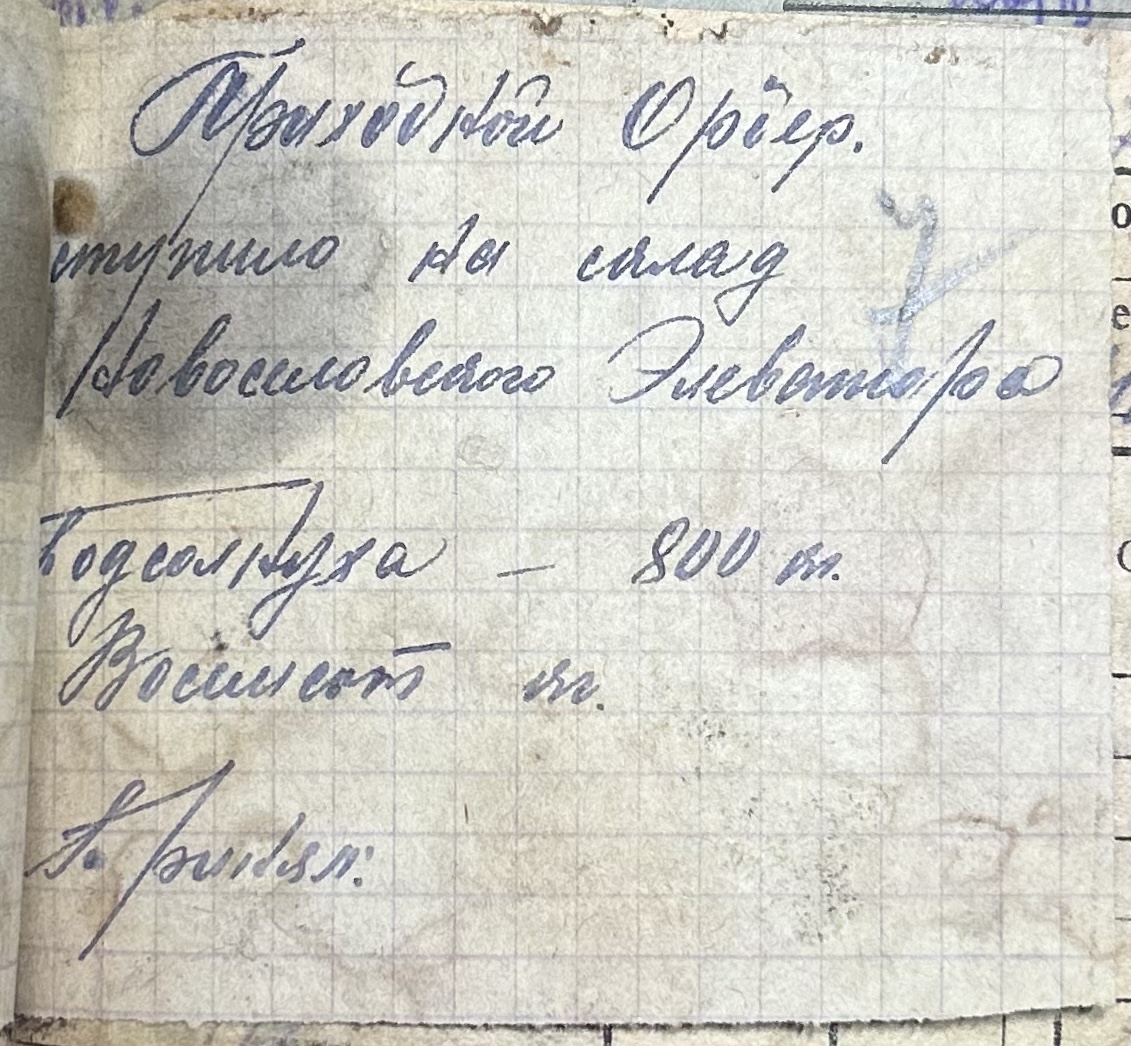 Приходной Ордер.
ступило на склад
Новоселовского Элеватора
Подсолнуха – 800 кг.
Восемсот кг.
Принял: